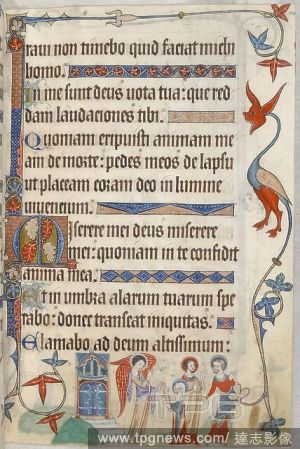 raui non timebo quid faciat michi
homo.
In me sunt deus uota tua: que red
dam laudaciones tibi.
Quoniam eripuisti animam me
am de morte: pedes meos de lapsu
ut placeam coram deo in lumine
uiuencium.
Miserere mei deus miserere
mei: quoniam in te confidit
anima mea.
Et in umbra alarum tuarum spe
rabo: donec transeat iniquitas.
Clamabo ad deum altissimum:
TPG
www.tpgnews.com / 達志影像